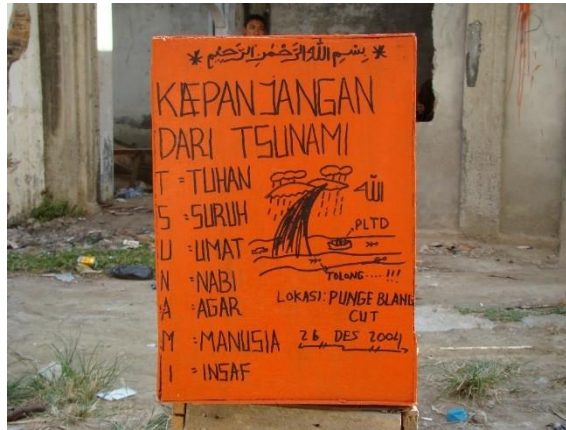 * بسم الله الرحمن الرحيم *
KAEPANJANGAN
DARI TSUNAMI
T = TUHAN
S = SURUH
U = UMAT
N = NABI
A = AGAR
M = MANUSIA
I = INSAF
الله
PLTD
TOLONG.....!!!
LOKASI: PUNGE BLANG
CUT
26 DES 2004